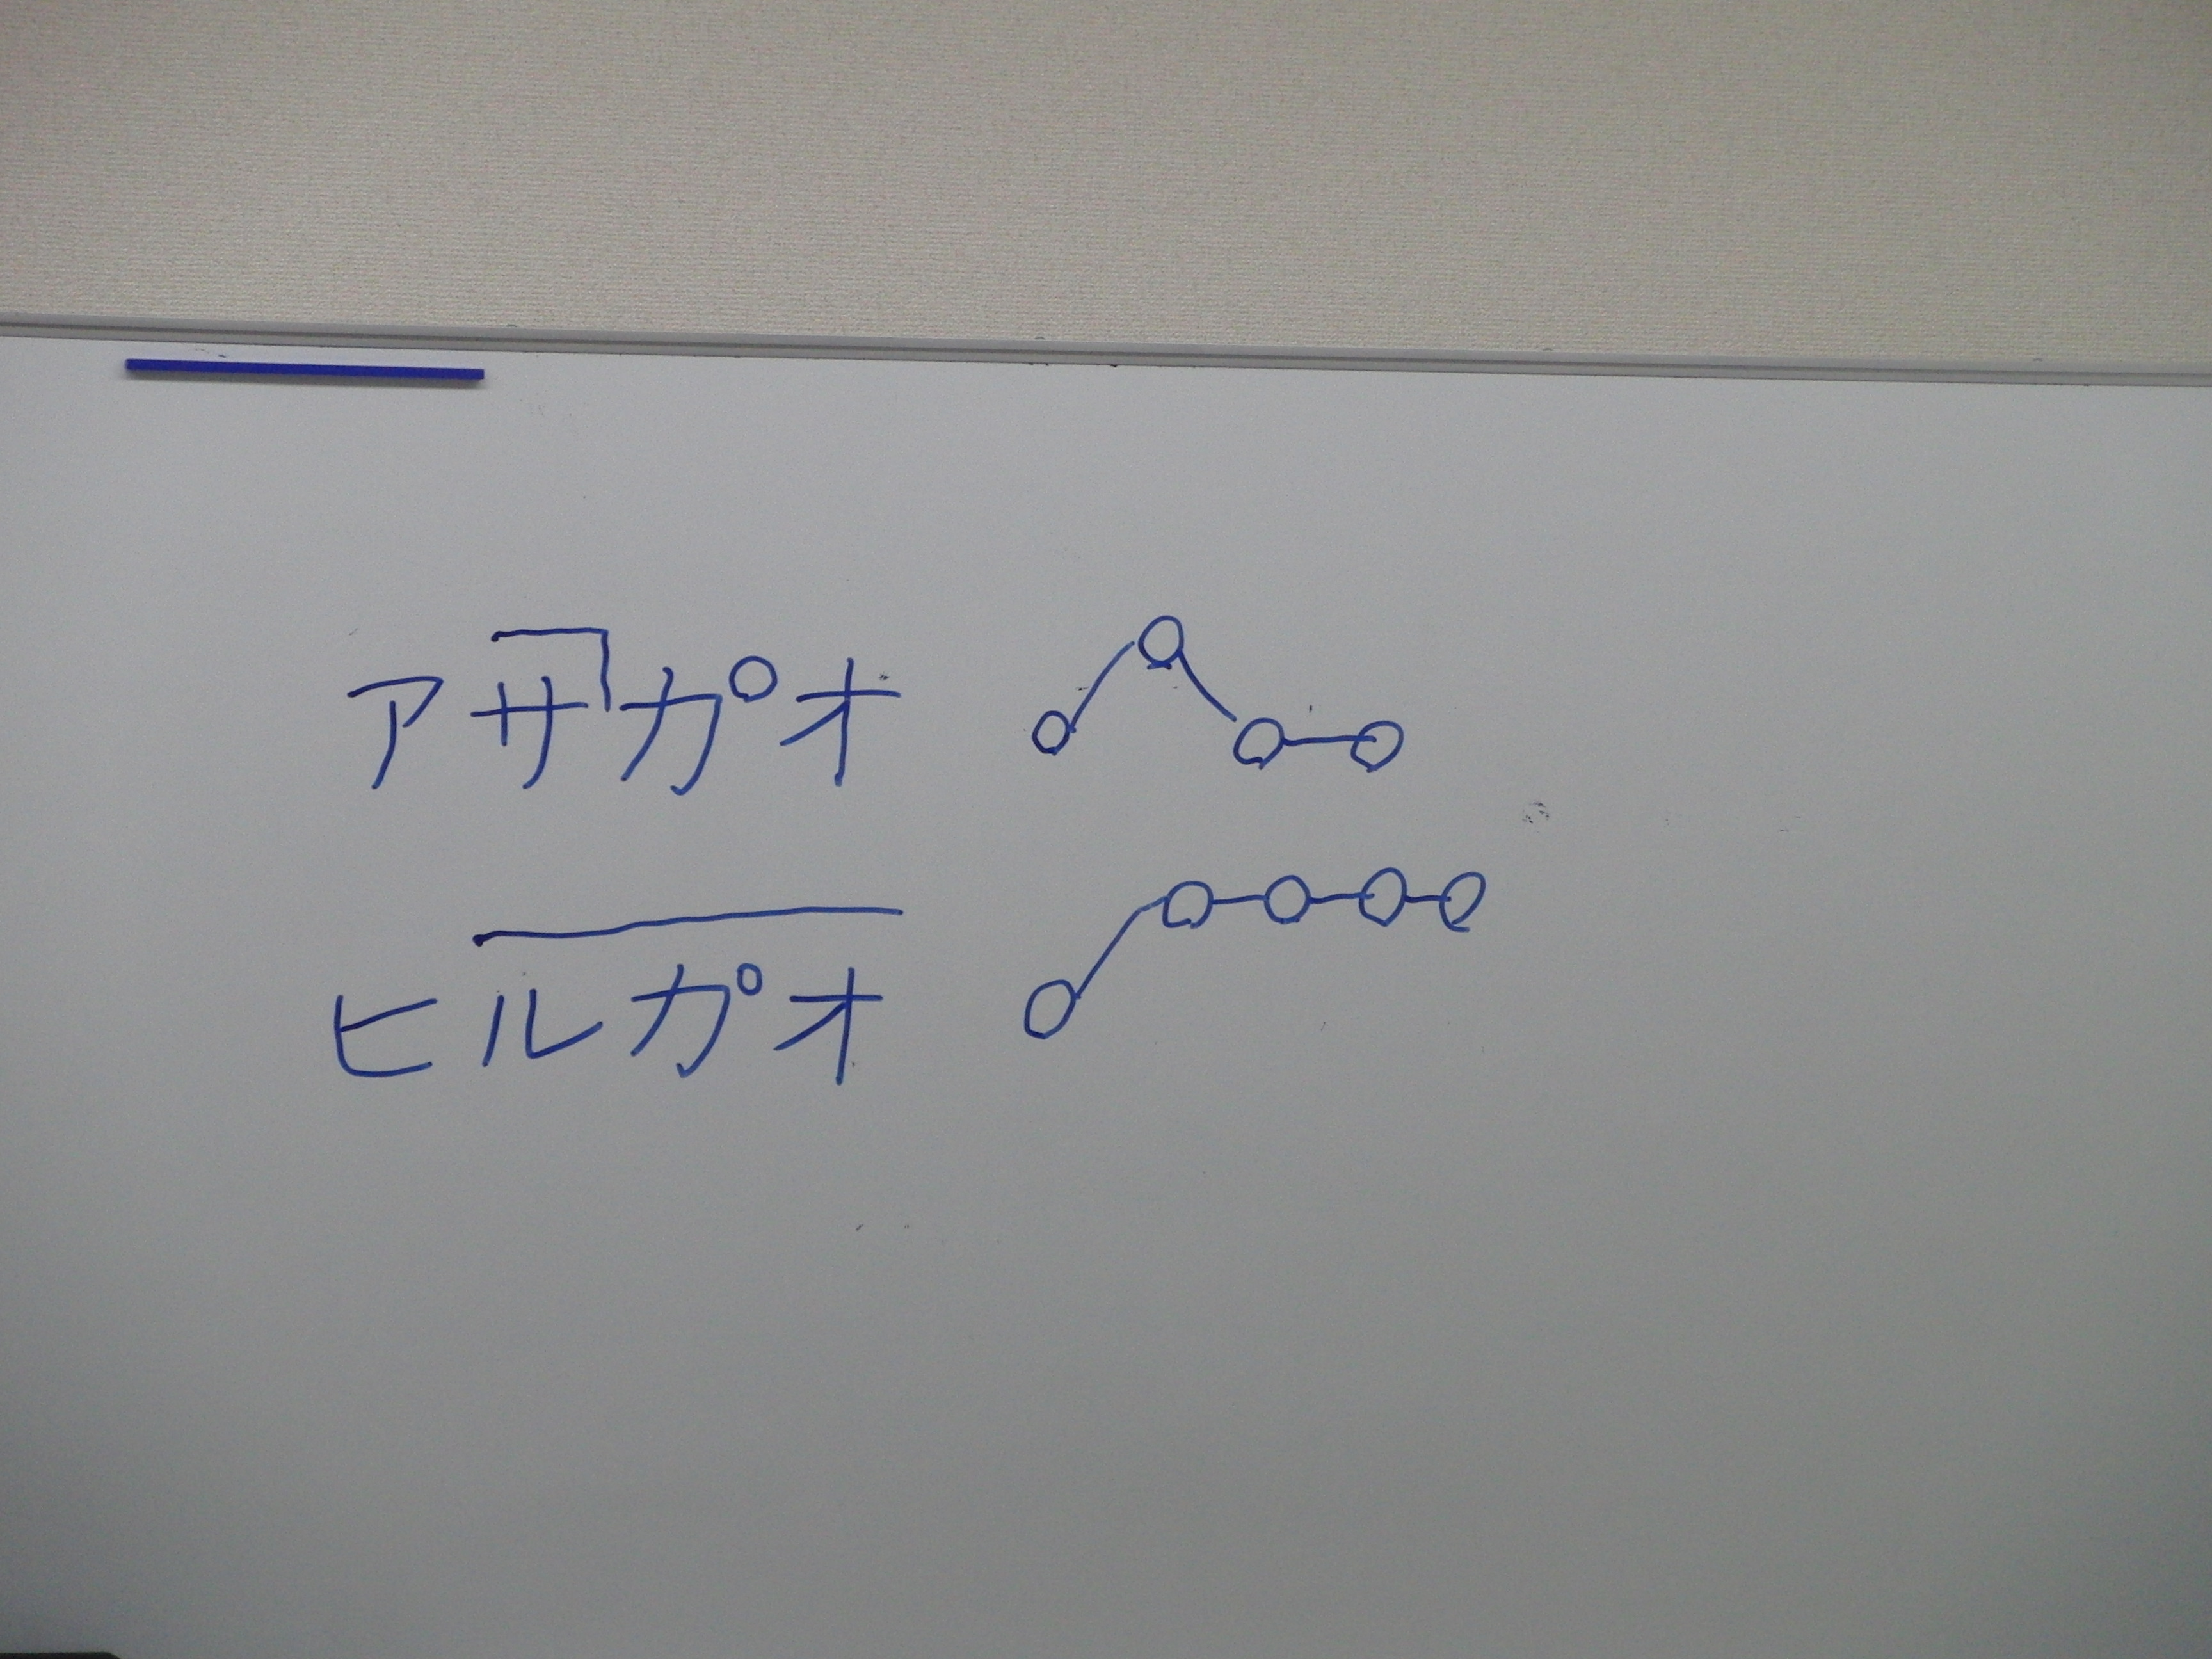 アサカ゚オ
ヒルカ゚オ